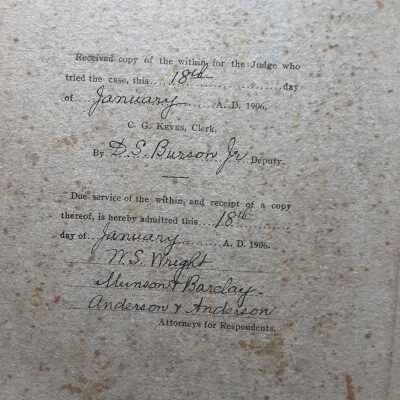 Received copy of the within, for the Judge who
tried the case, this 18th day
of January A. D. 1906.
C. G. KEYES, Clerk.
By D. S. Burson Jr Deputy.
Due service of the within, and receipt of a copy
thereof, is hereby admitted this 18th
day of January A. D. 1906.
W. S. Wright
Munson & Barclay
Anderson & Anderson
Attorneys for Respondents.